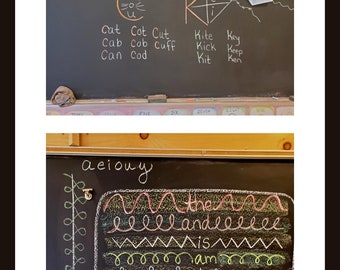 C K
a o u
Cat Cot Cut Kite Key
Cab Cob Cuff Kick Keep
Can Cod Kit Ken
aeiouy
the
and
is
am